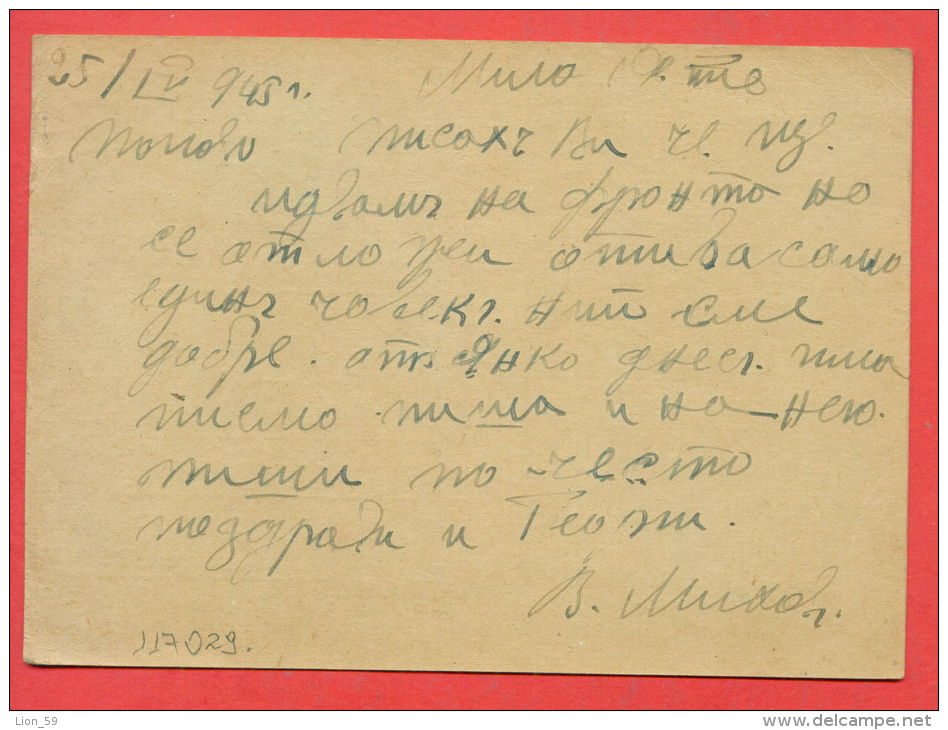 25/IV 945 г.
Мило
Попово писахъ Ви че
идвамъ на фронта но
се отложи отива само
единъ човекъ. ний сме
добре. отъ Янко днесъ има
писмо пиша и на него.
пиши по-често
поздрави и Георги.
В. Михов
117029.
Lion_59
delcampe.net